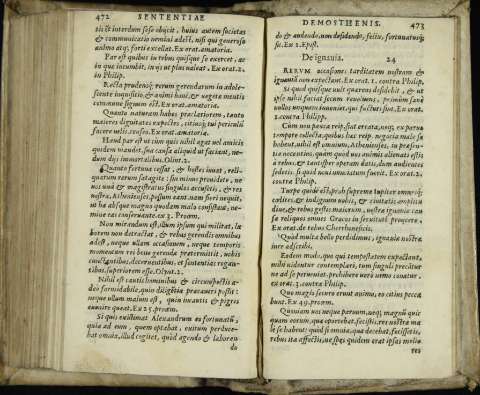 472 SENTENTIAE
tis et interdum sese obijcit, huius autem societas
& communicatio nemini adest, nisi qui generoso
animo atq; forti excellat. Ex orat. amatoria.
Par est quibus in rebus quisque se exercet, ac
in quæ incumbit, in ijs ut plus ualeat. Ex orat. 2.
in Philip.
Recta prudensq; rerum gerendarum in adole-
scente inquisitio, & animi haud & uegeta mentis
commune signum est. Ex orat. amatoria.
Quanto naturam habes præclariorem, tanto
maiores dignitates expectes, citiusq; tui periculū
facere uelis, censeo. Ex orat. amatoria.
Haud par est ut cum quis nihil agat uel amicis
quidem suadet, sua causa aliquid ut faciant, ne-
dum dijs immortalibus. Olint. 2.
Quanto fortuna cessat, & hostes inuat, reli-
quarum rerum satagite: sin minus prouidete, ne
uos unà & magistratus singulos accusetis, & res
uestræ, Athenienses, pessum eant, nam fieri nequit,
ut hæ absque magno quodam malo consistant, ne-
mine eas conseruante. ex 3. Proœm.
Non mirandum est, illum ipsum qui militat, la-
borem non detrectat, & rebus gerendis omnibus
adest, neque ullam occasionem, neque temporis
momentum rei bene gerendæ prætermittit, uobis
cunctantibus, decernentibus, et sententias rogan-
tibus, superiorem esse. Olynt. 2.
Nihil est cautis hominibus & circumspectis a-
deo formidabile, quin diligentia præcaueri possit:
neque ullum malum est, quin incautis & pigris
euenire queat. Ex 25. proœm.
Si quis existimat Alexandrum ex fortunatū,
quia ad eum, quem optabat, exitum perduce-
bat omnia, illud cogitet, quòd agendo & laboran
do
DEMOSTHENIS. 473
do & audendo, non desidendo, felix, fortunatusq;
sit. Ex 1. Epist.
De ignauia. 24
RERUM occasiones tarditatem nostram &
ignauiā non expectant. Ex orat. 1. contra Philip.
Si quod quisque uult quærens desidebit, & ut
ipse nihil faciat secum reueluens, primùm sanè
nullos unquam inueniet, qui facturi sint. Ex orat.
2. contra Philipp.
Cùm una pauca respi, sint errata, nunc ex paruo
tempore collecta, quibus has resp. negocia male se
habeat, nihil est omnium, Athenienses, in præsen-
tia nocentius, quàm quòd uos animis alienati estis
à rebus, & tantisper operam datis, dum audientes
sedetis, si quid noui nunciatum fuerit. Ex orat. 2.
contra Philip.
Turpe quidē est, proh supreme Iupiter omnesq;
cælites & indignum uobis, & ciuitatis amplitu-
dine, & rebus gestis maiorum, uestra ignauia cau-
sa reliquos omnes Græcos in seruitutē proijcere.
Ex orat. de rebus Cherrhonesicis.
Quòd multa bello perdidimus, ignauiæ nostræ
iure adscribi.
Eodem modo, quo qui tempestatem expectant,
nihil uidentur contemplari, tum singuli precātur
ne ad se perueniat, prohibere uerò nemo conatur.
ex orat. 3. contra Philip.
Quo magis securo erunt animo, eo citius pecca
bunt. Ex 49. proœm.
Quoniam uos neque paruum, neq; magnū quic
quam eorum, quæ oportebat, fecistis, res uestræ ma
lè se habent: quòd si omnia, quæ decebat, fecissetis,
rebus ita affectis, ne spes quidem erat ipsas melio-
res